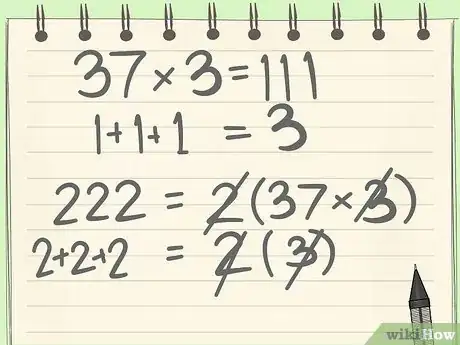 37 × 3 = 111
1+1+1 = 3
222 = 2(37 × 3)
2+2+2 = 2(3)
wikiHow